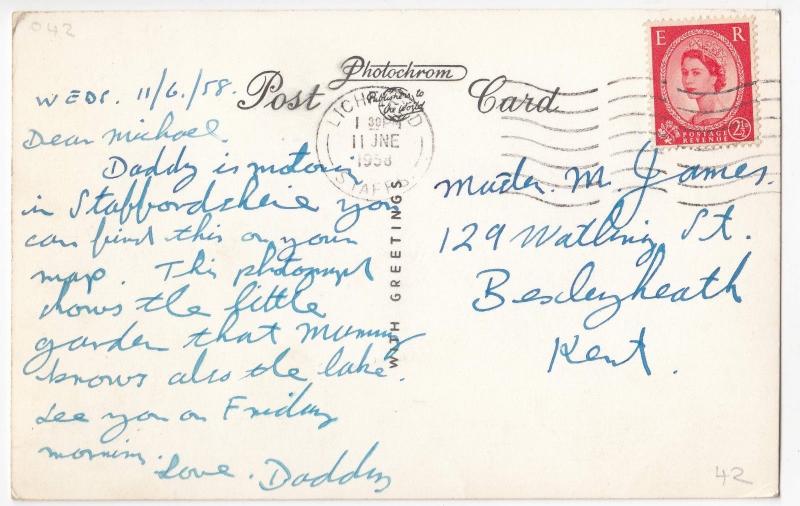 042
Photochrom
Post Card
Publishers to
the World
E R
POSTAGE
REVENUE
2½
LICHFIELD
1 30PM
11 JNE
1958
STAFFS.
WEDS. 11/6/58.
Dear Michael.
Daddy is motoring
in Staffordshire you
can find this on your
map. This photograph
shows the little
garden that Mummy
knows also the lake.
See you on Friday
morning.
Love. Daddy
WITH GREETINGS
Master. M. James.
129 Watling St.
Bexleyheath
Kent.
42